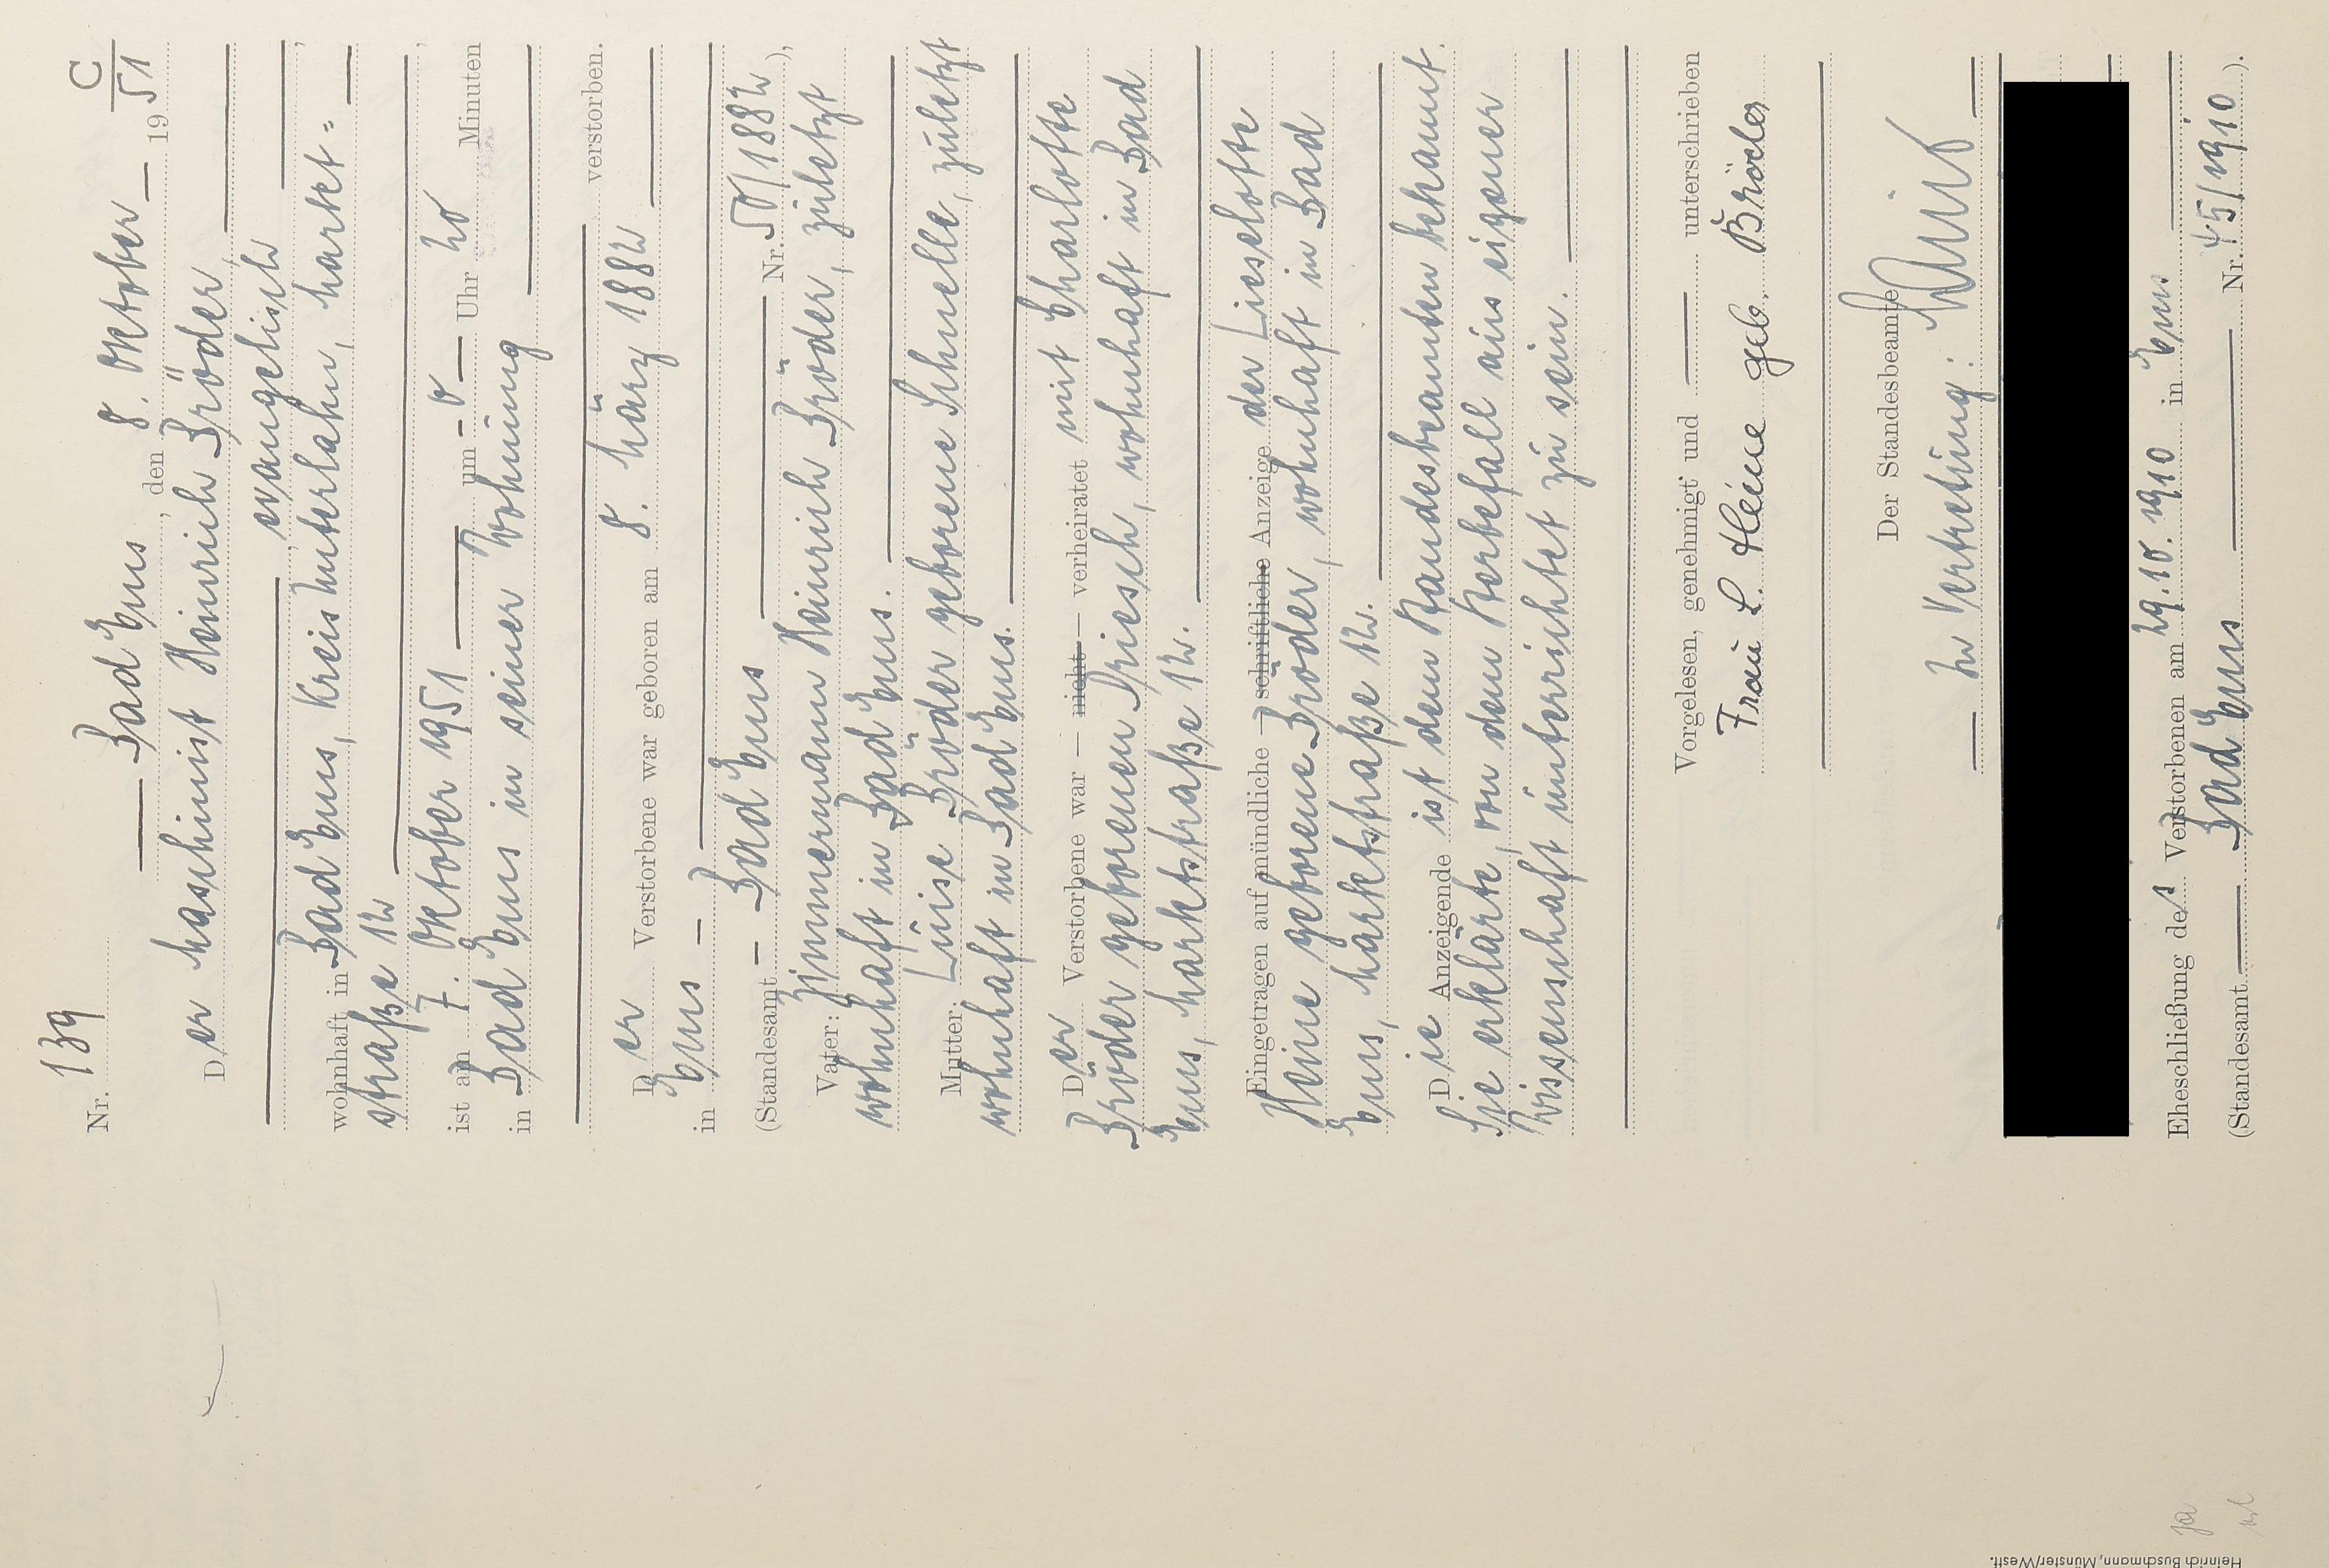 C
Nr. 139
Bad Ems, den 8. Oktober 1951
Der Maschinist Heinrich Bröder,
evangelisch
wohnhaft in Bad Ems, Kreis Unterlahn, Markt=
straße 12
ist am 7. Oktober 1951 um - 0 - Uhr 20 Minuten
in Bad Ems in seiner Wohnung
verstorben.
Der Verstorbene war geboren am 8. März 1882
in Ems
(Standesamt Bad Ems Nr. 50/1882),
Vater: Zimmermann Heinrich Bröder, zuletzt
wohnhaft in Bad Ems.
Mutter: Luise Bröder geborene Schnelle, zuletzt
wohnhaft in Bad Ems.
Der Verstorbene war — nicht — verheiratet mit Charlotte
Bröder geborenen Driesch, wohnhaft in Bad
Ems, Marktstraße 12.
Eingetragen auf mündliche — schriftliche Anzeige der Lieselotte
Heine geborene Bröder, wohnhaft in Bad
Ems, Marktstraße 12.
Die Anzeigende ist dem Standesbeamten bekannt.
Sie erklärte, von dem Sterbefall aus eigener
Wissenschaft unterrichtet zu sein.
Vorgelesen, genehmigt und unterschrieben
Frau L. Heine geb. Bröder
Der Standesbeamte
In Vertretung:
Eheschließung des Verstorbenen am 29.10.1910 in Ems
(Standesamt Bad Ems Nr. 45/1910).
Heinrich Buschmann, Münster/Westf.